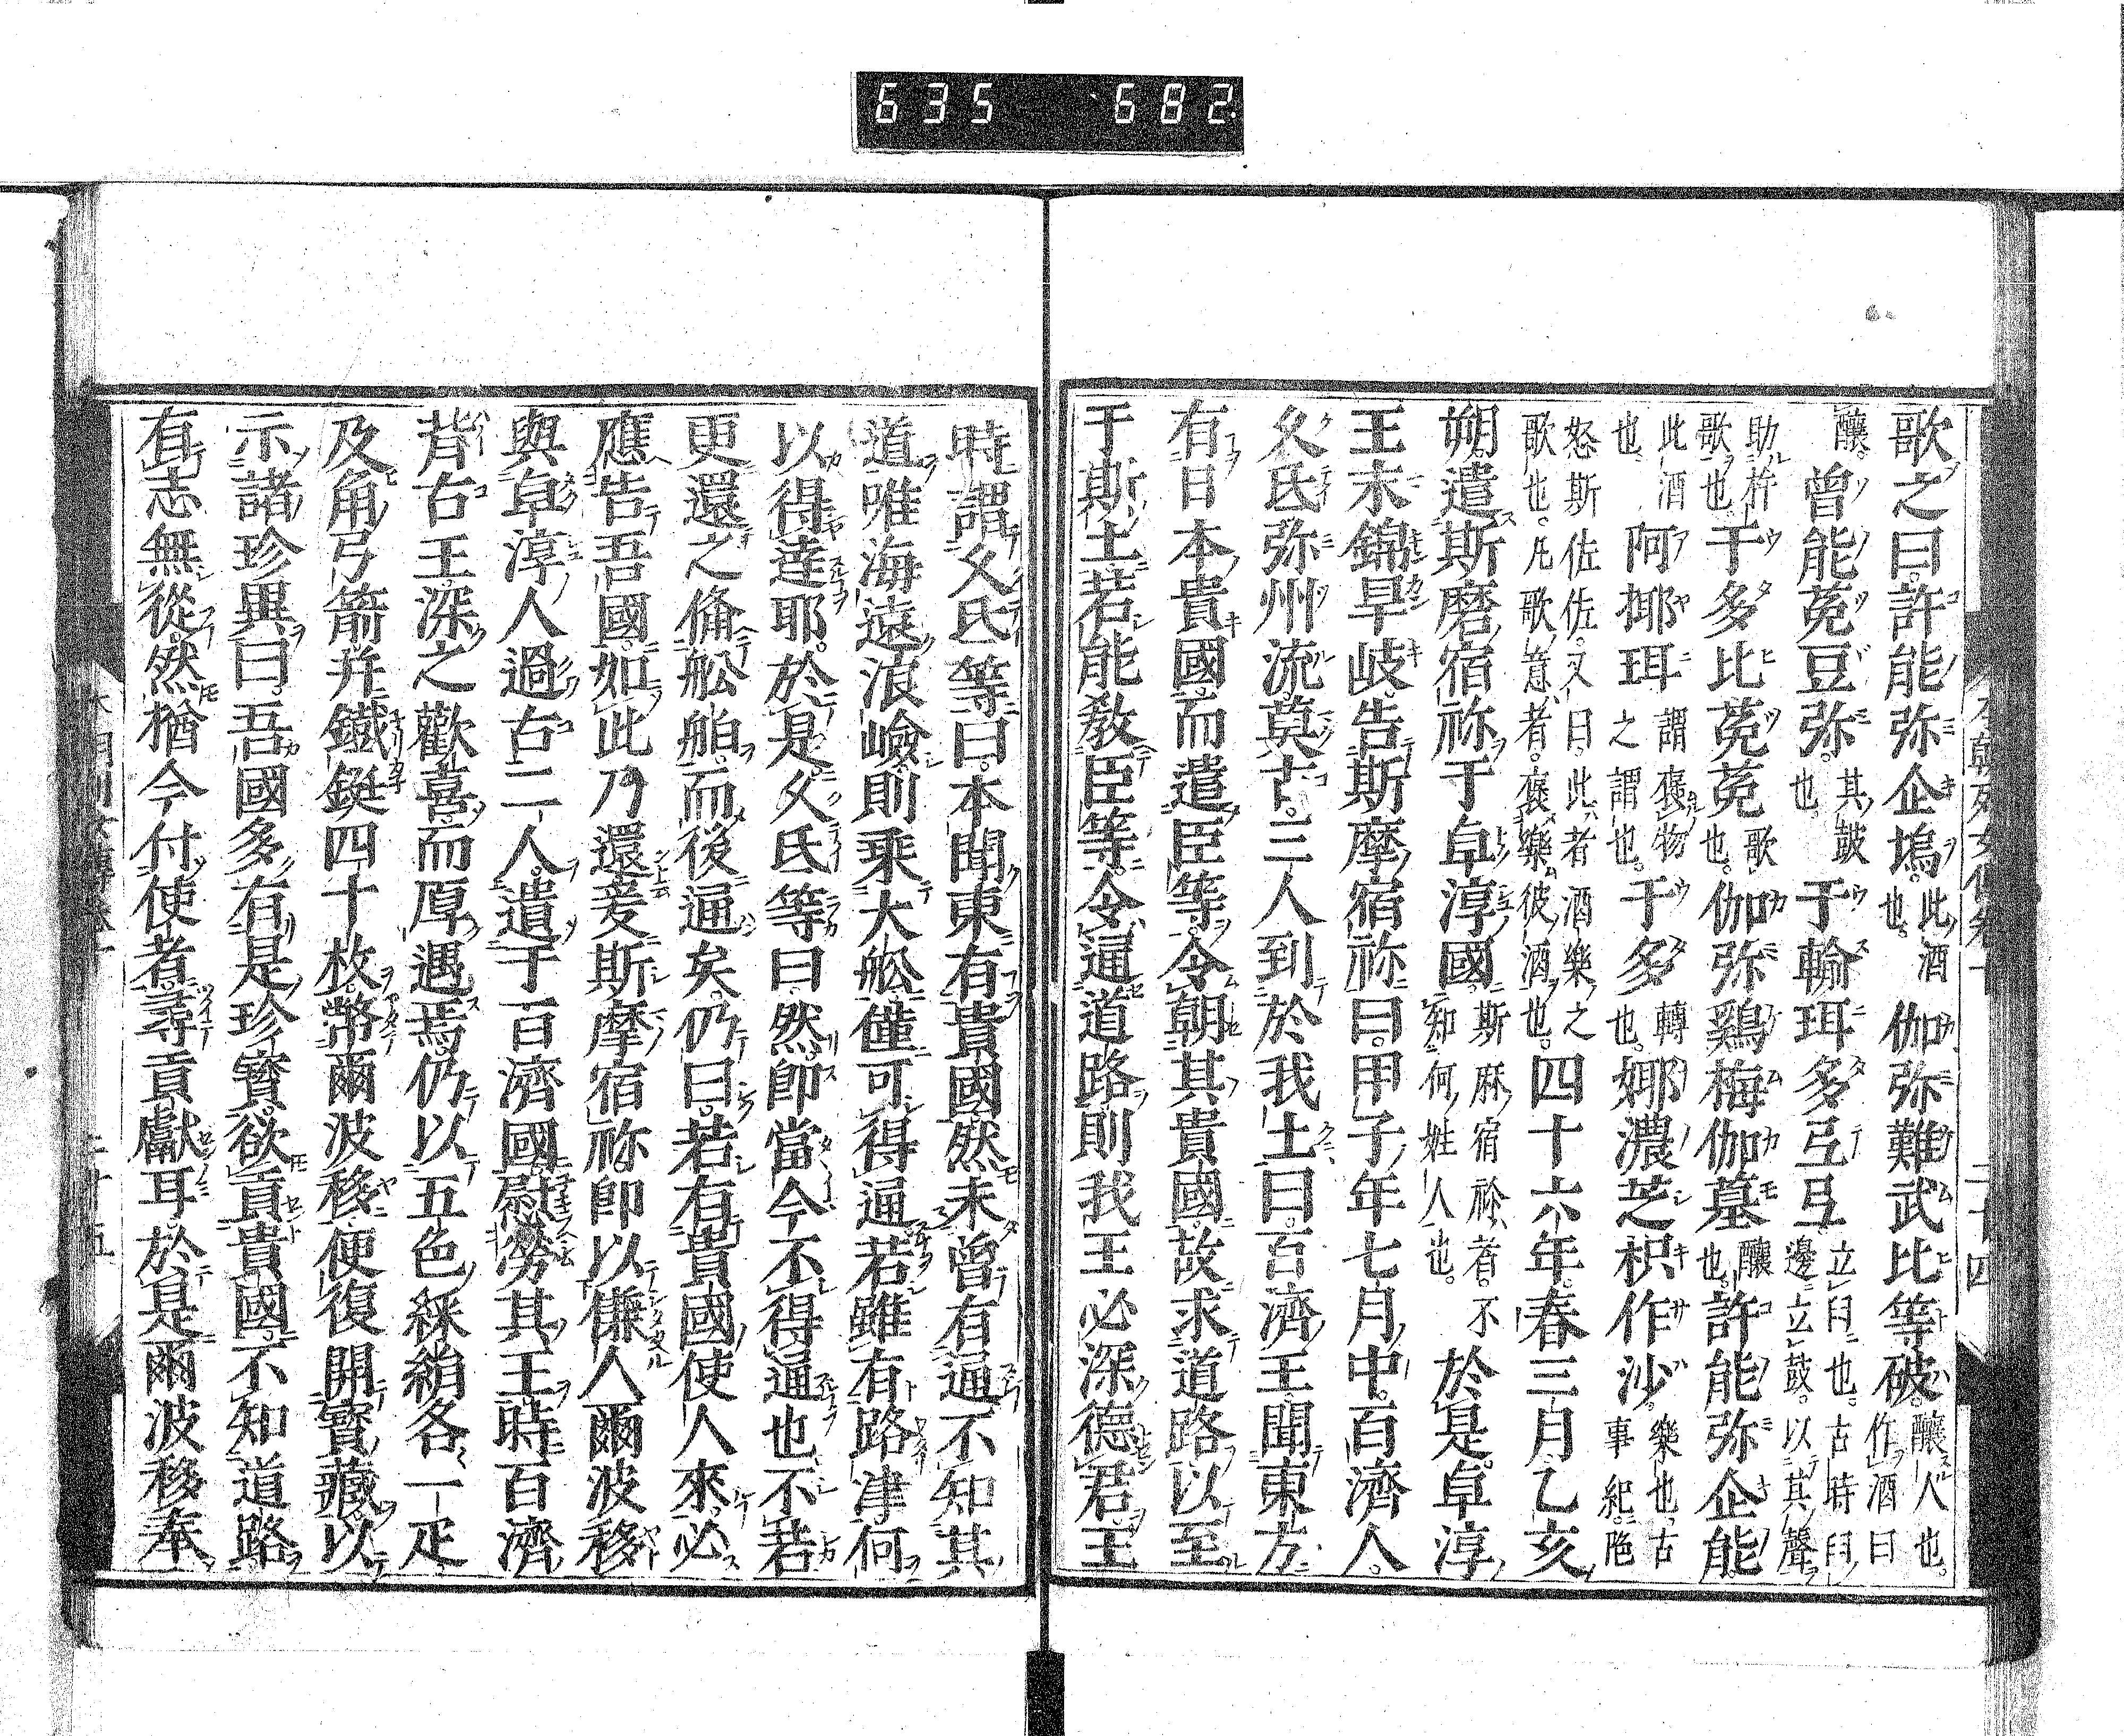 本朝列女傳卷十　二十四
歌之曰。許能弥企塢。此酒也。伽弥難武比等破。釀人也。作酒曰
釀。曾能菟豆弥。其鼓也。于輸珥多弖弖。立臼也。古時臼邊立鼓。以其聲
助杵歌也。于多比菟菟。歌也。伽弥鷄梅伽墓。釀也。許能弥企能
此酒也。阿揶珥。謂褒物之謂也。于多。轉也。娜濃芝枳作沙。樂也。古事紀。陁
怒斯佐佐。又曰。此者酒樂之歌也。凡歌意者。褒樂彼酒也。四十六年。春三月乙亥
朔。遣斯磨宿祢于卓淳國。斯麻宿祢者。不知何姓人也。於是。卓淳
王末錦旱岐。告斯摩宿祢曰。甲子年七月中。百濟人。
久氐弥州流莫古。三人到於我土曰。百濟王聞東方
有日本貴國。而遣臣等。令朝其貴國。故求道路以至
于斯土。若能敎臣等。令通道路。則我王必深德君王
時謂久氐等曰。本聞東有貴國。然未曾有通不知其
道。唯海遠浪嶮。則乘大舩。僅可得通。若雖有路津。何
以得達耶。於是。久氐等曰。然即當今不得通也。不若
更還之備舩舶。而後通矣。仍曰。若有貴國使人來。必
應告吾國。如此乃還。爰斯摩宿祢。即以傔人爾波移
與卓淳人過古二人。遣于百濟國。慰勞其王。時百濟
背古王。深之歡喜。而厚遇焉。仍以五色綵絹各一疋。
及角弓箭。并鐵鋌四十枚。幣爾波移。便復開寳藏。以
示諸珍異曰。吾國多有是珍寳。欲貢貴國。不知道路。
有志無從。然猶今付使者。尋貢獻耳。於是爾波移奉